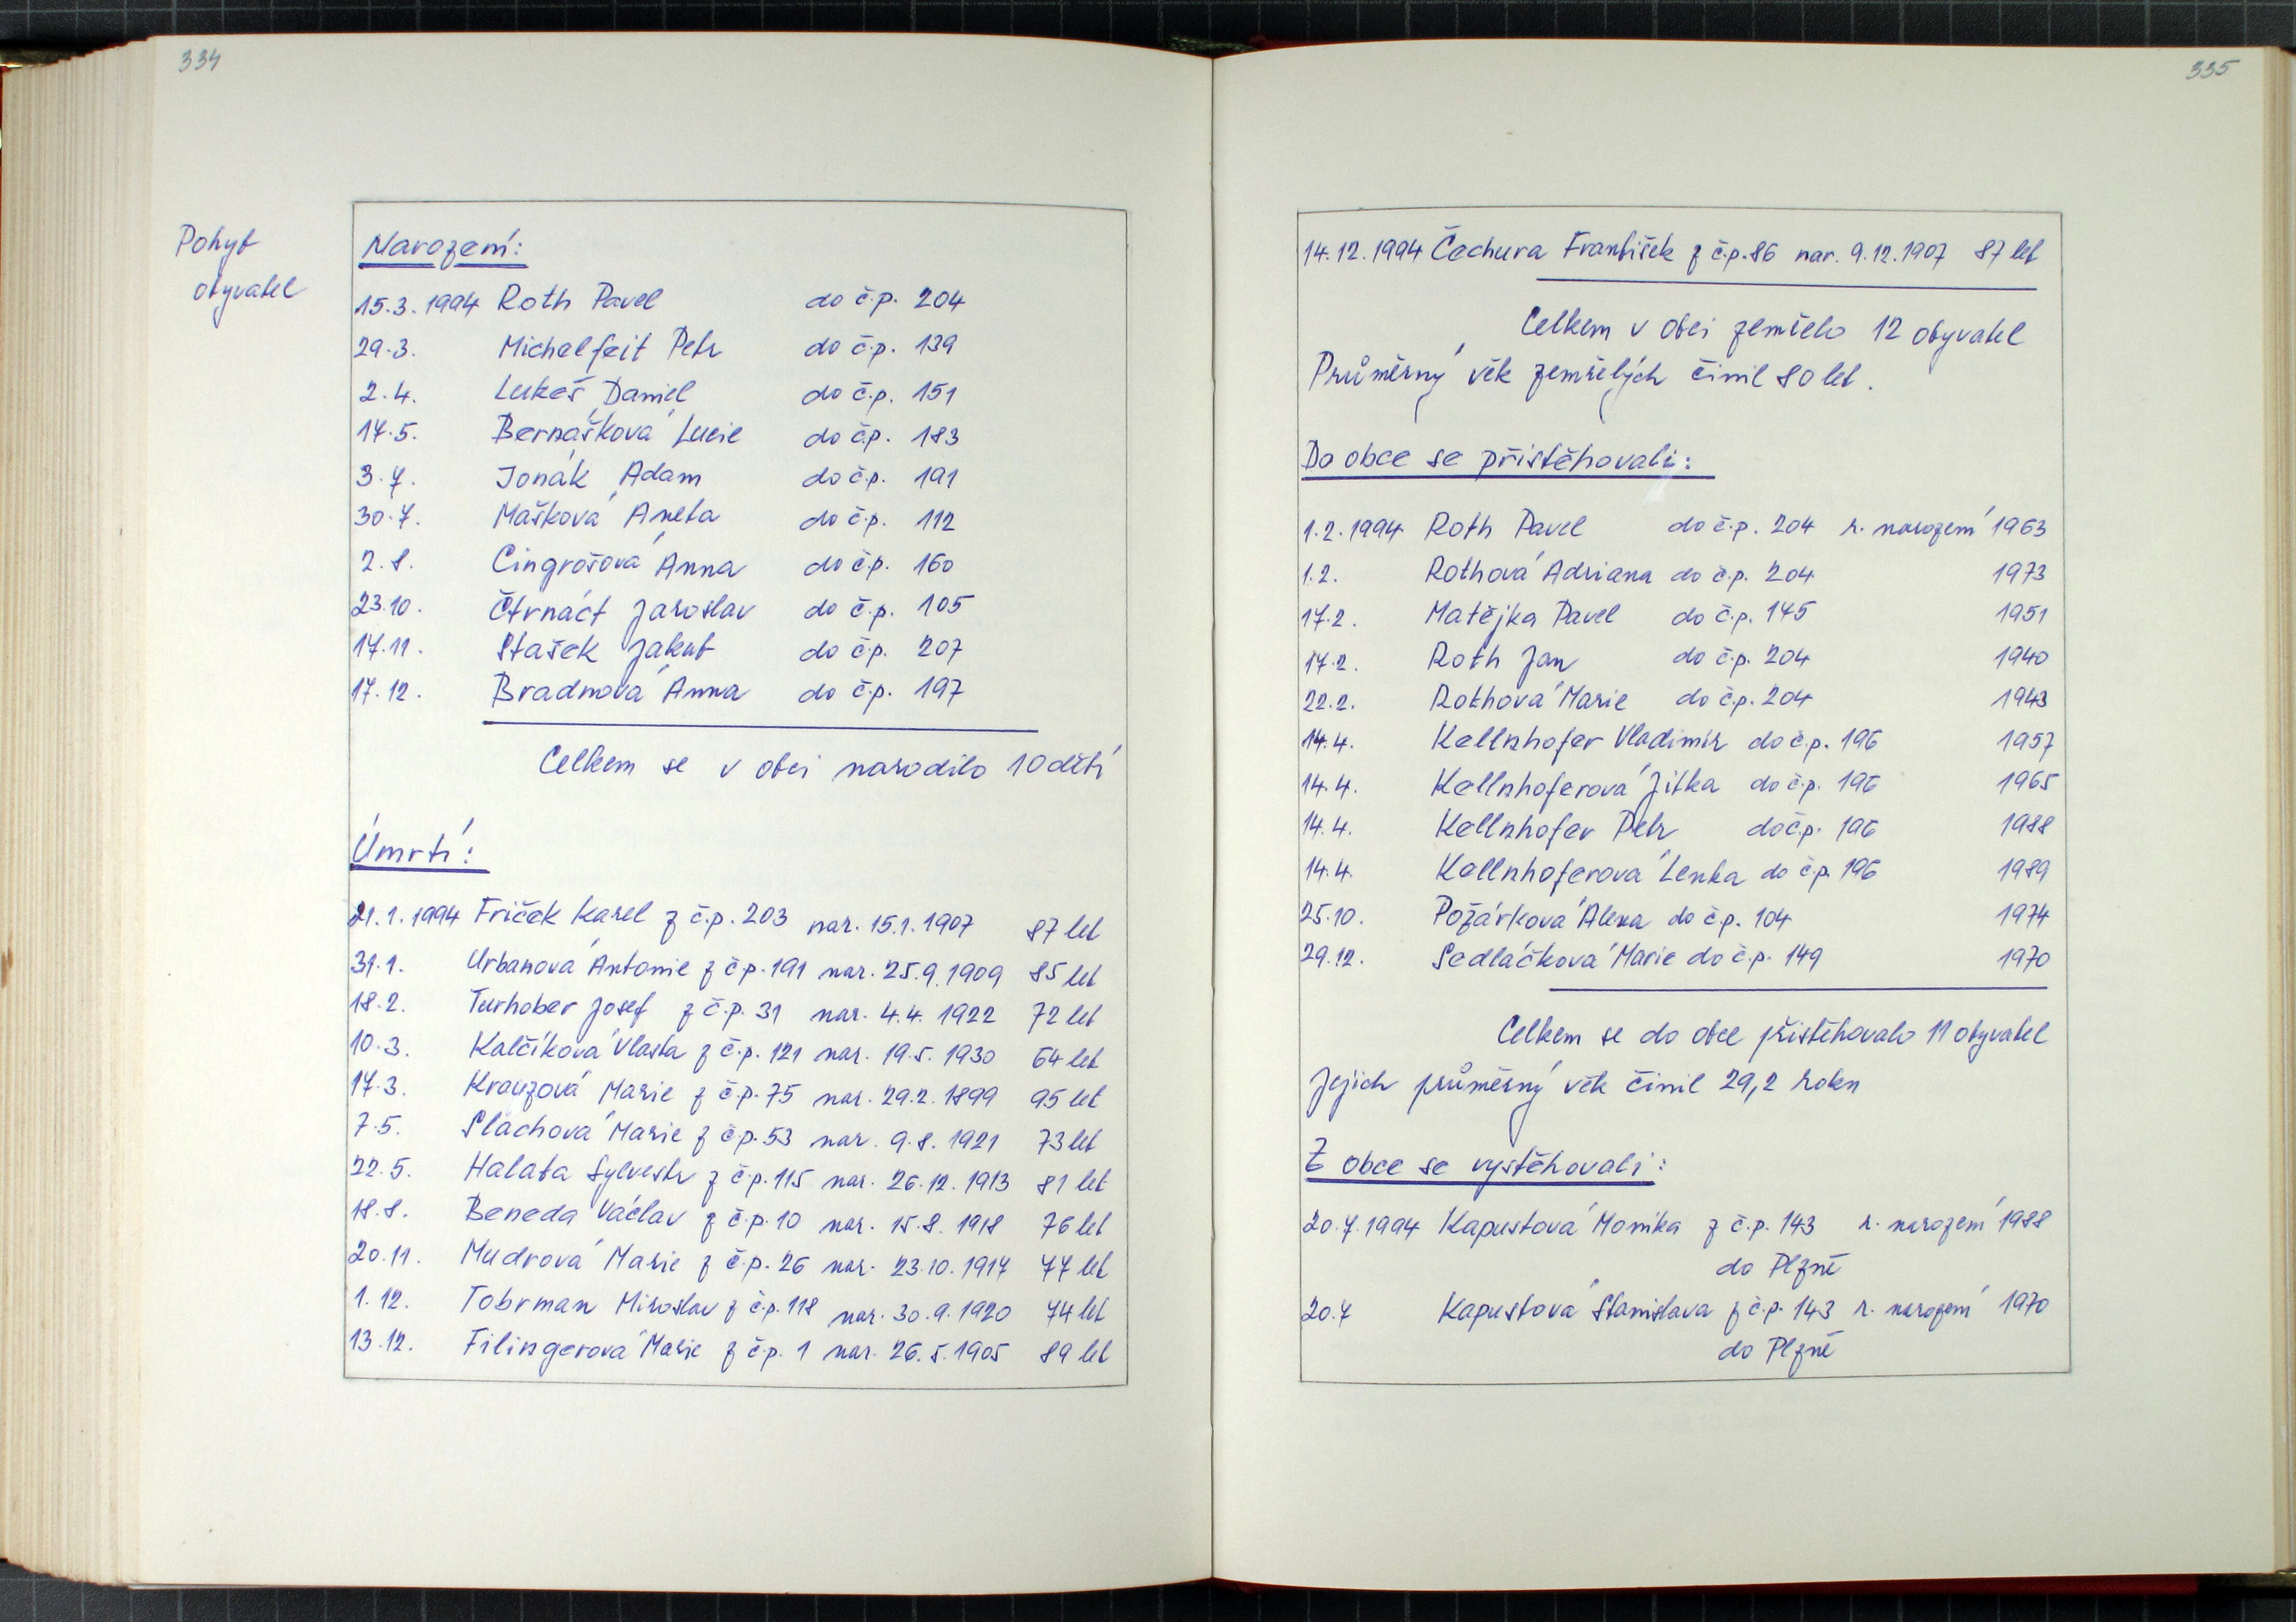 334
Pohyb
obyvatel
Narození:
15.3.1994 Roth Pavel do č.p. 204
29.3. Michalfeit Petr do č.p. 139
2.4. Lukeš Daniel do č.p. 151
17.5. Bernášková Lucie do č.p. 183
3.7. Jonák Adam do č.p. 191
30.7. Mašková Aneta do č.p. 112
2.8. Cingrošová Anna do č.p. 160
23.10. Čtrnáct Jaroslav do č.p. 105
17.11. Stašek Jakub do č.p. 207
17.12. Bradnová Anna do č.p. 197
Celkem se v obci narodilo 10 dětí
Úmrtí:
21.1.1994 Friček Karel z č.p. 203 nar. 15.1.1907 87 let
31.1. Urbanová Antonie z č.p. 191 nar. 25.9.1909 85 let
18.2. Turhober Josef z č.p. 31 nar. 4.4. 1922 72 let
10.3. Kalčíková Vlasta z č.p. 121 nar. 19.5. 1930 64 let
17.3. Krauzová Marie z č.p. 75 nar. 29.2. 1899 95 let
7.5. Slachová Marie z č.p. 53 nar. 9.8. 1921 73 let
22.5. Halata Sylvestr z č.p. 115 nar. 26.12. 1913 81 let
18.8. Beneda Václav z č.p. 10 nar. 15.8. 1918 76 let
20.11. Mudrová Marie z č.p. 26 nar. 23.10. 1917 77 let
1.12. Tobrman Miroslav z č.p. 118 nar. 30.9. 1920 74 let
13.12. Filingerová Marie z č.p. 1 nar. 26.5. 1905 89 let
335
14.12.1994 Čechura František z č.p. 86 nar. 9.12.1907 87 let
Celkem v obci zemřelo 12 obyvatel
Průměrný věk zemřelých činil 80 let.
Do obce se přistěhovali:
1.2.1994 Roth Pavel do č.p. 204 r. narození 1963
1.2. Rothová Adriana do č.p. 204 1973
17.2. Matějka Pavel do č.p. 145 1951
17.2. Roth Jan do č.p. 204 1940
22.2. Rothová Marie do č.p. 204 1943
14.4. Kellnhofer Vladimír do č.p. 196 1957
14.4. Kellnhoferová Jitka do č.p. 196 1965
14.4. Kellnhofer Petr do č.p. 196 1988
14.4. Kellnhoferová Lenka do č.p. 196 1989
25.10. Požárková Alena do č.p. 104 1974
29.12. Sedláčková Marie do č.p. 149 1970
Celkem se do obce přistěhovalo 11 obyvatel
Jejich průměrný věk činil 29,2 roku
Z obce se vystěhovali:
20.7.1994 Kapustová Monika z č.p. 143 r. narození 1988
do Plzně
20.7 Kapustová Stanislava z č.p. 143 r. narození 1970
do Plzně